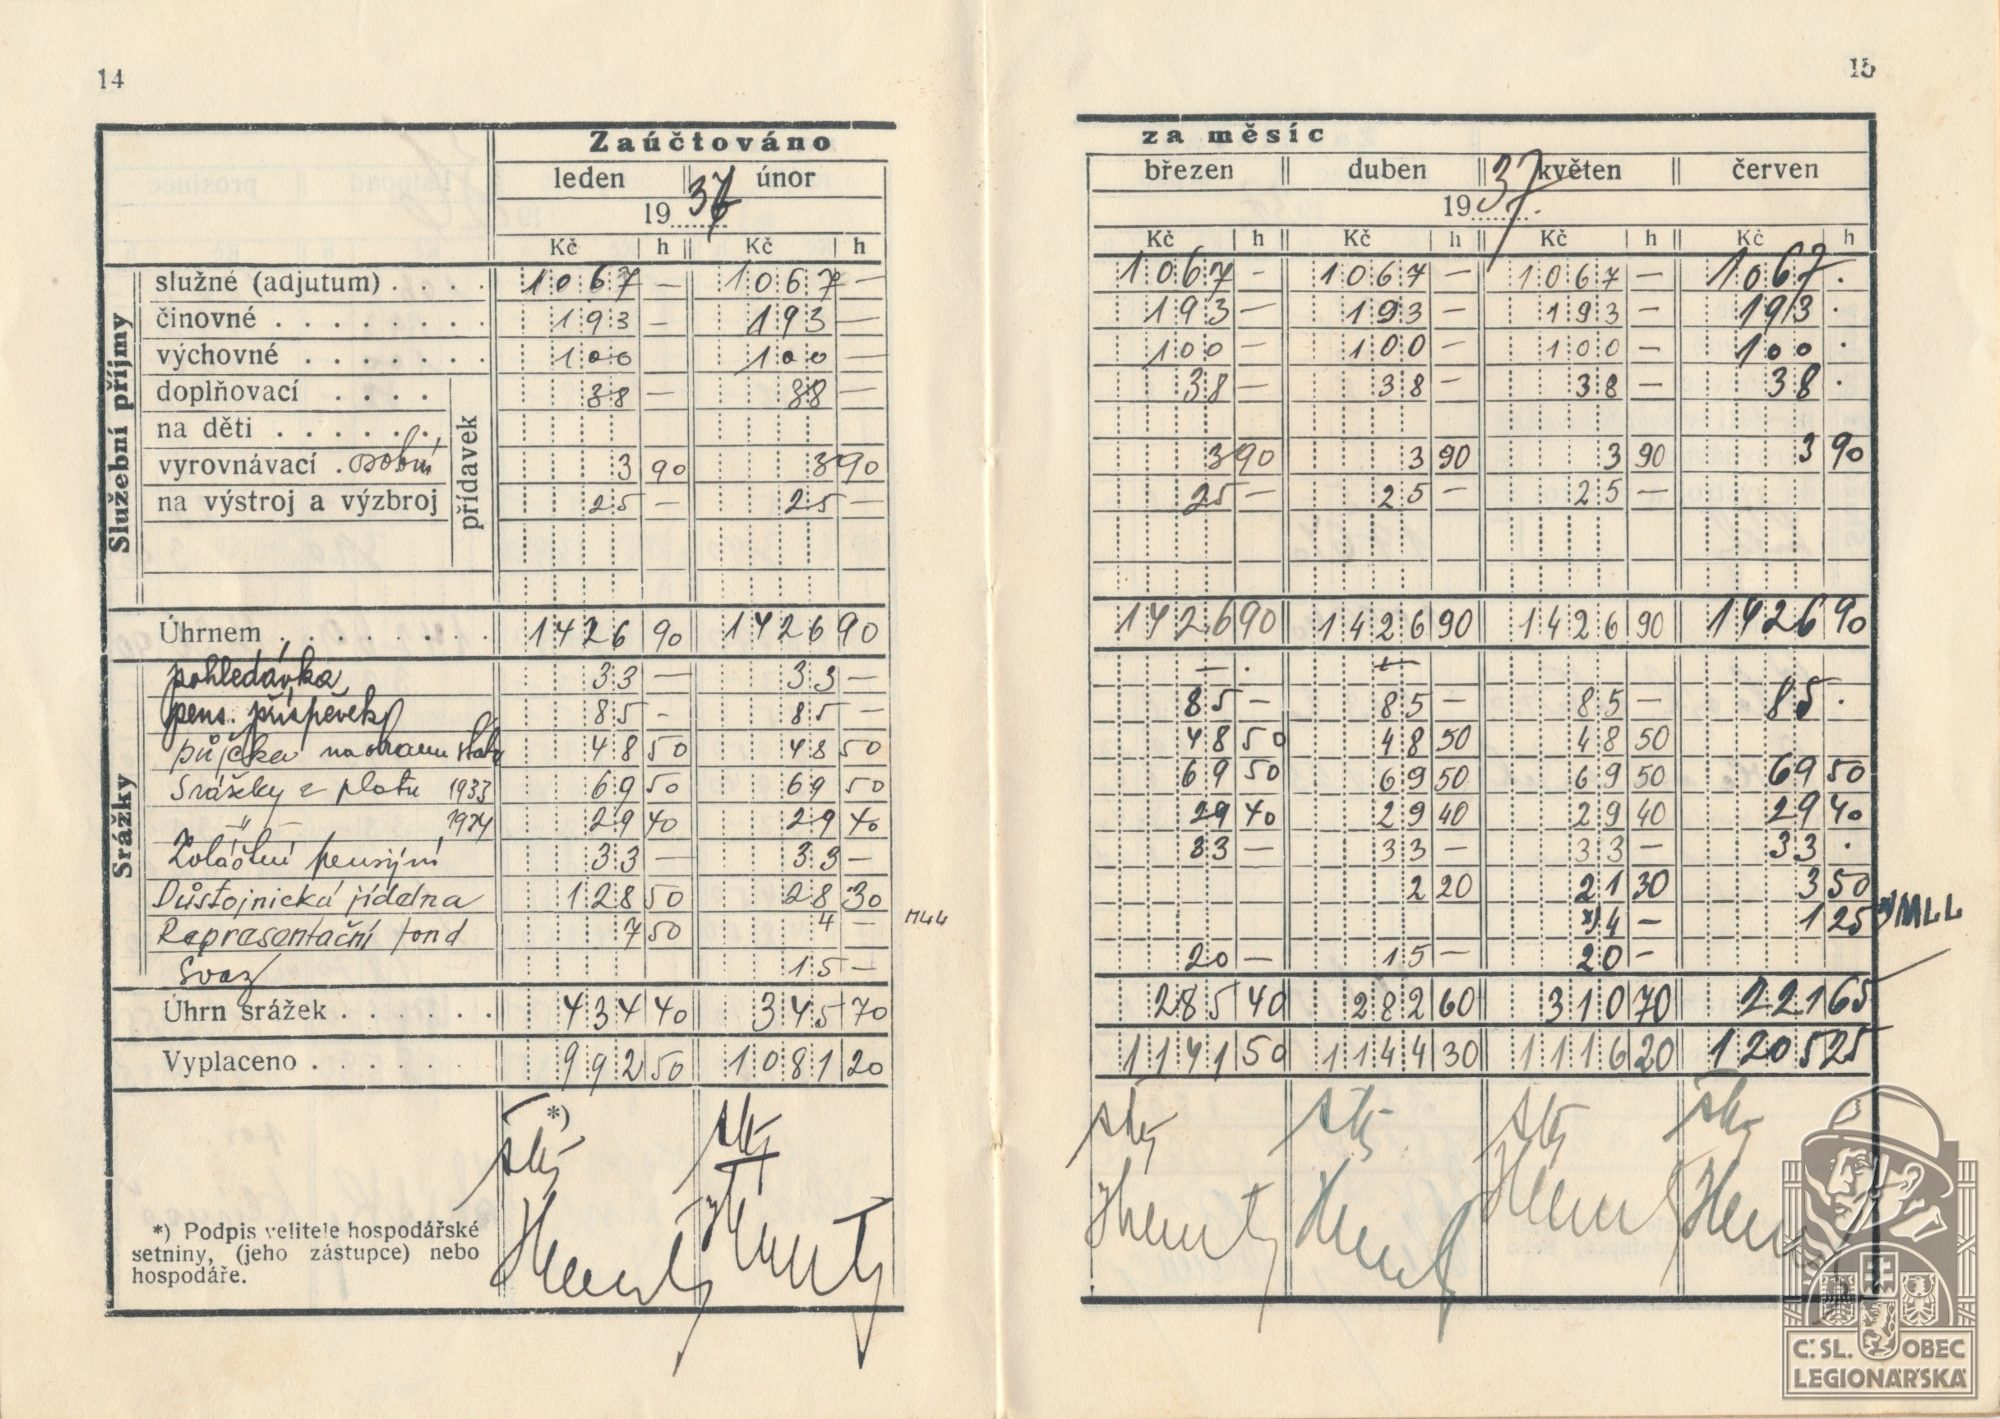 14
Zaúčtováno
leden || únor
19 37
Kč | h || Kč | h
Služební příjmy
služné (adjutum) . . . . 1067 — 1067 —
činovné . . . . . . . . 193 — 193 —
výchovné . . . . . . . 100 100 —
přídavek
doplňovací . . . . 38 — 38 —
na děti . . . . . .
vyrovnávací . osobní 3 90 3 90
na výstroj a výzbroj 25 — 25 —
Úhrnem . . . . . . . . 1426 90 1426 90
Srážky
pohledávka 33 — 33 —
pens. příspěvek 85 - 85 —
půjčka na obranu státu 48 50 48 50
Srážky z platu 1933 69 50 69 50
—"— 1934 29 40 29 40
Zvláštní pensijní 33 — 33 —
Důstojnická jídelna 128 50 28 30
Representační fond 7 50 4 —
Svaz 15 —
Úhrn srážek . . . . . . 434 40 345 70
Vyplaceno . . . . . . . 992 50 1081 20
*)
*) Podpis velitele hospodářské
setniny, (jeho zástupce) nebo
hospodáře.
15
za měsíc
březen || duben || květen || červen
19 37.
Kč | h || Kč | h || Kč | h || Kč | h
1067 - 1067 — 1067 — 1067 .
193 — 193 — 193 — 193 .
100 — 100 — 100 — 100 .
38 — 38 — 38 — 38 .
3 90 3 90 3 90 3 90
25 — 25 — 25 —
1426 90 1426 90 1426 90 1426 90
— . —
85 — 85 — 85 — 85 .
48 50 48 50 48 50
69 50 69 50 69 50 69 50
29 40 29 40 29 40 29 40
33 — 33 — 33 — 33 .
2 20 21 30 3 50
x) 4 — 1 25
20 — 15 — 20 —
285 40 282 60 310 70 221 65
1141 50 1144 30 1116 20 1205 25
Č. SL. OBEC
LEGIONÁŘSKÁ